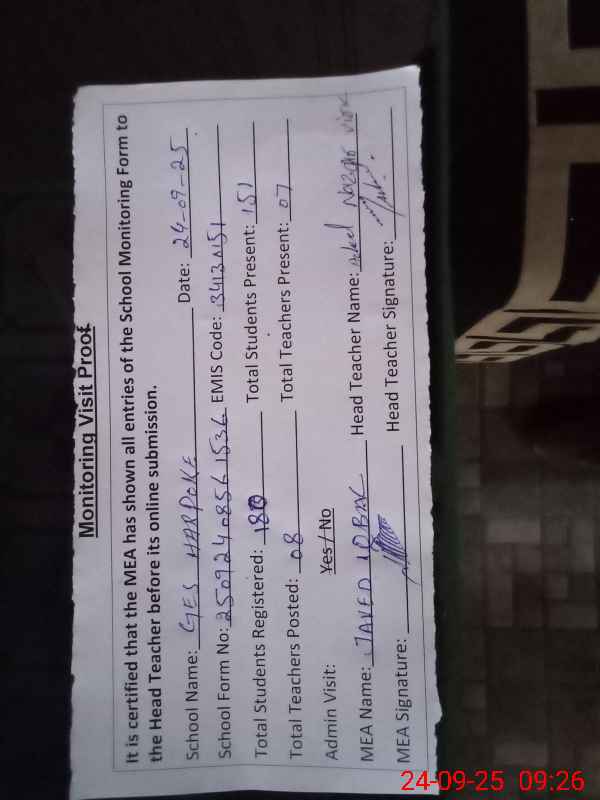 Monitoring Visit Proof
It is certified that the MEA has shown all entries of the School Monitoring Form to
the Head Teacher before its online submission.
School Name: GES HARPOKE Date: 24-09-25
School Form No: 25092408561536 EMIS Code: 34130151
Total Students Registered: 180 Total Students Present: 151
Total Teachers Posted: 08 Total Teachers Present: 07
Admin Visit: Yes / No
MEA Name: JAVED IQBAL Head Teacher Name: Virk
MEA Signature: Head Teacher Signature:
24-09-25 09:26